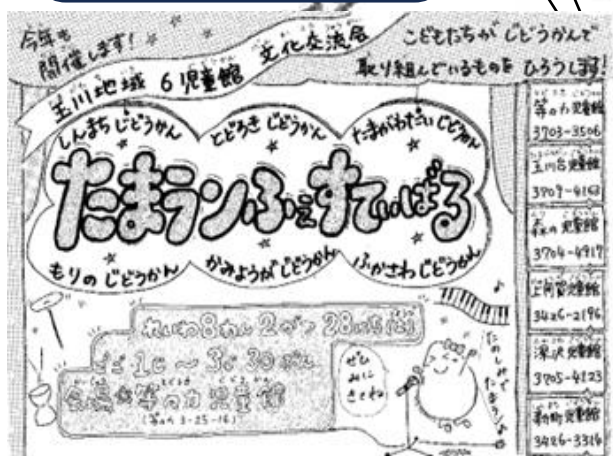 今年も
開催します!
玉川地域 6児童館 文化交流会
こどもたちが じどうかんで
取り組んでいるものを ひろうします!
しんまちじどうかん とどろきじどうかん たまがわだいじどうかん
たまランふぇすてぃばる
もりのじどうかん かみようがじどうかん ふかさわじどうかん
れいわ8ねん 2がつ 28にち(土)
ごご1じ~3じ30ぷん
会場 等々力児童館
(等々力 3-25-16)
ぜひ
みに
きてね
たのしみで
たまランふぇす
等々力児童館
3703-3506
玉川台児童館
3709-4163
森の児童館
3704-4917
上用賀児童館
3426-2196
深沢児童館
3705-4123
新町児童館
3426-3316